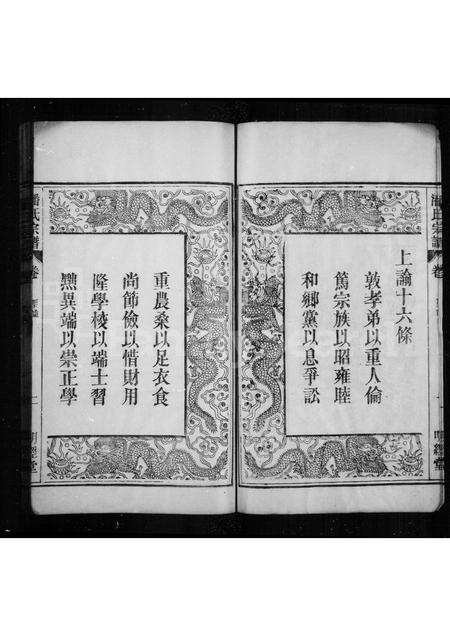 上諭十六條
敦孝弟以重人倫
篤宗族以昭雍睦
和鄉黨以息爭訟
重農桑以足衣食
尚節儉以惜財用
隆學校以端士習
黜異端以崇正學
潘氏宗譜
卷
明經堂
潘氏宗譜
卷
明經堂